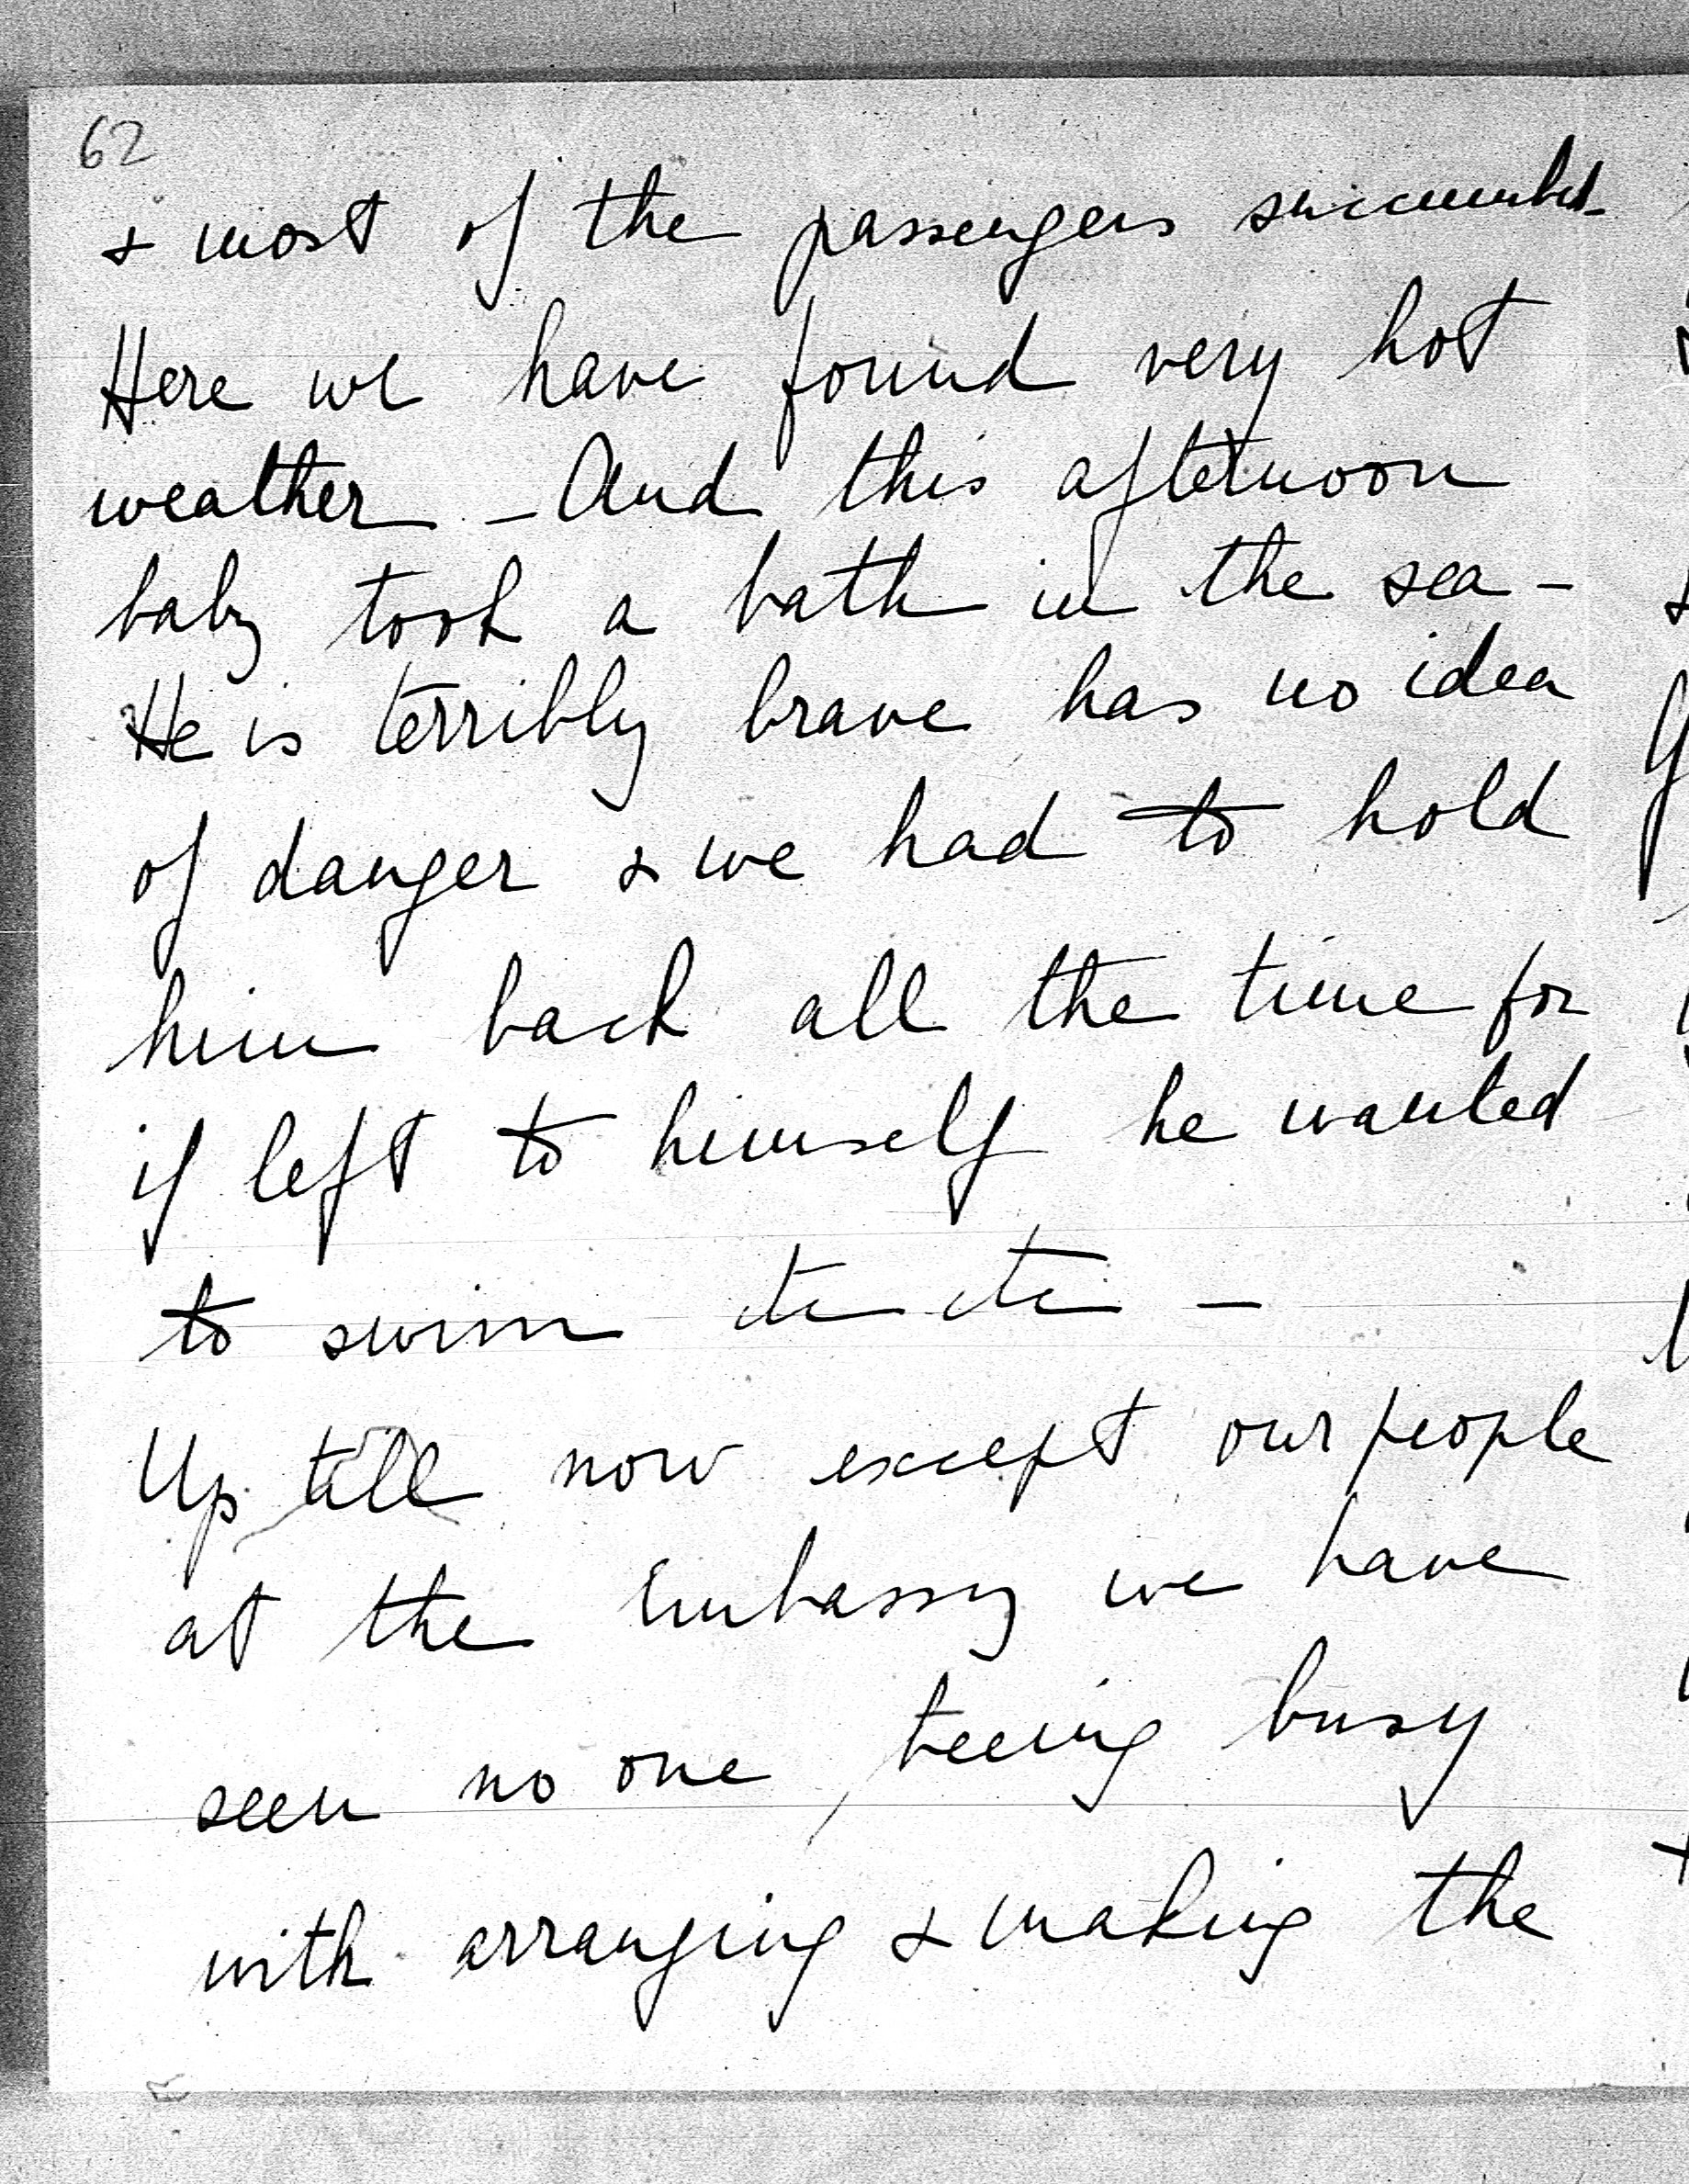 62
& most of the passengers succumbed
Here we have found very hot
weather - And this afternoon
baby took a bath in the sea -
He is terribly brave has no idea
of danger & we had to hold
him back all the time for
if left to himself he wanted
to swim etc etc -
Up till now except our people
at the Embassy we have
seen no one, beeing busy
with arranging & making the